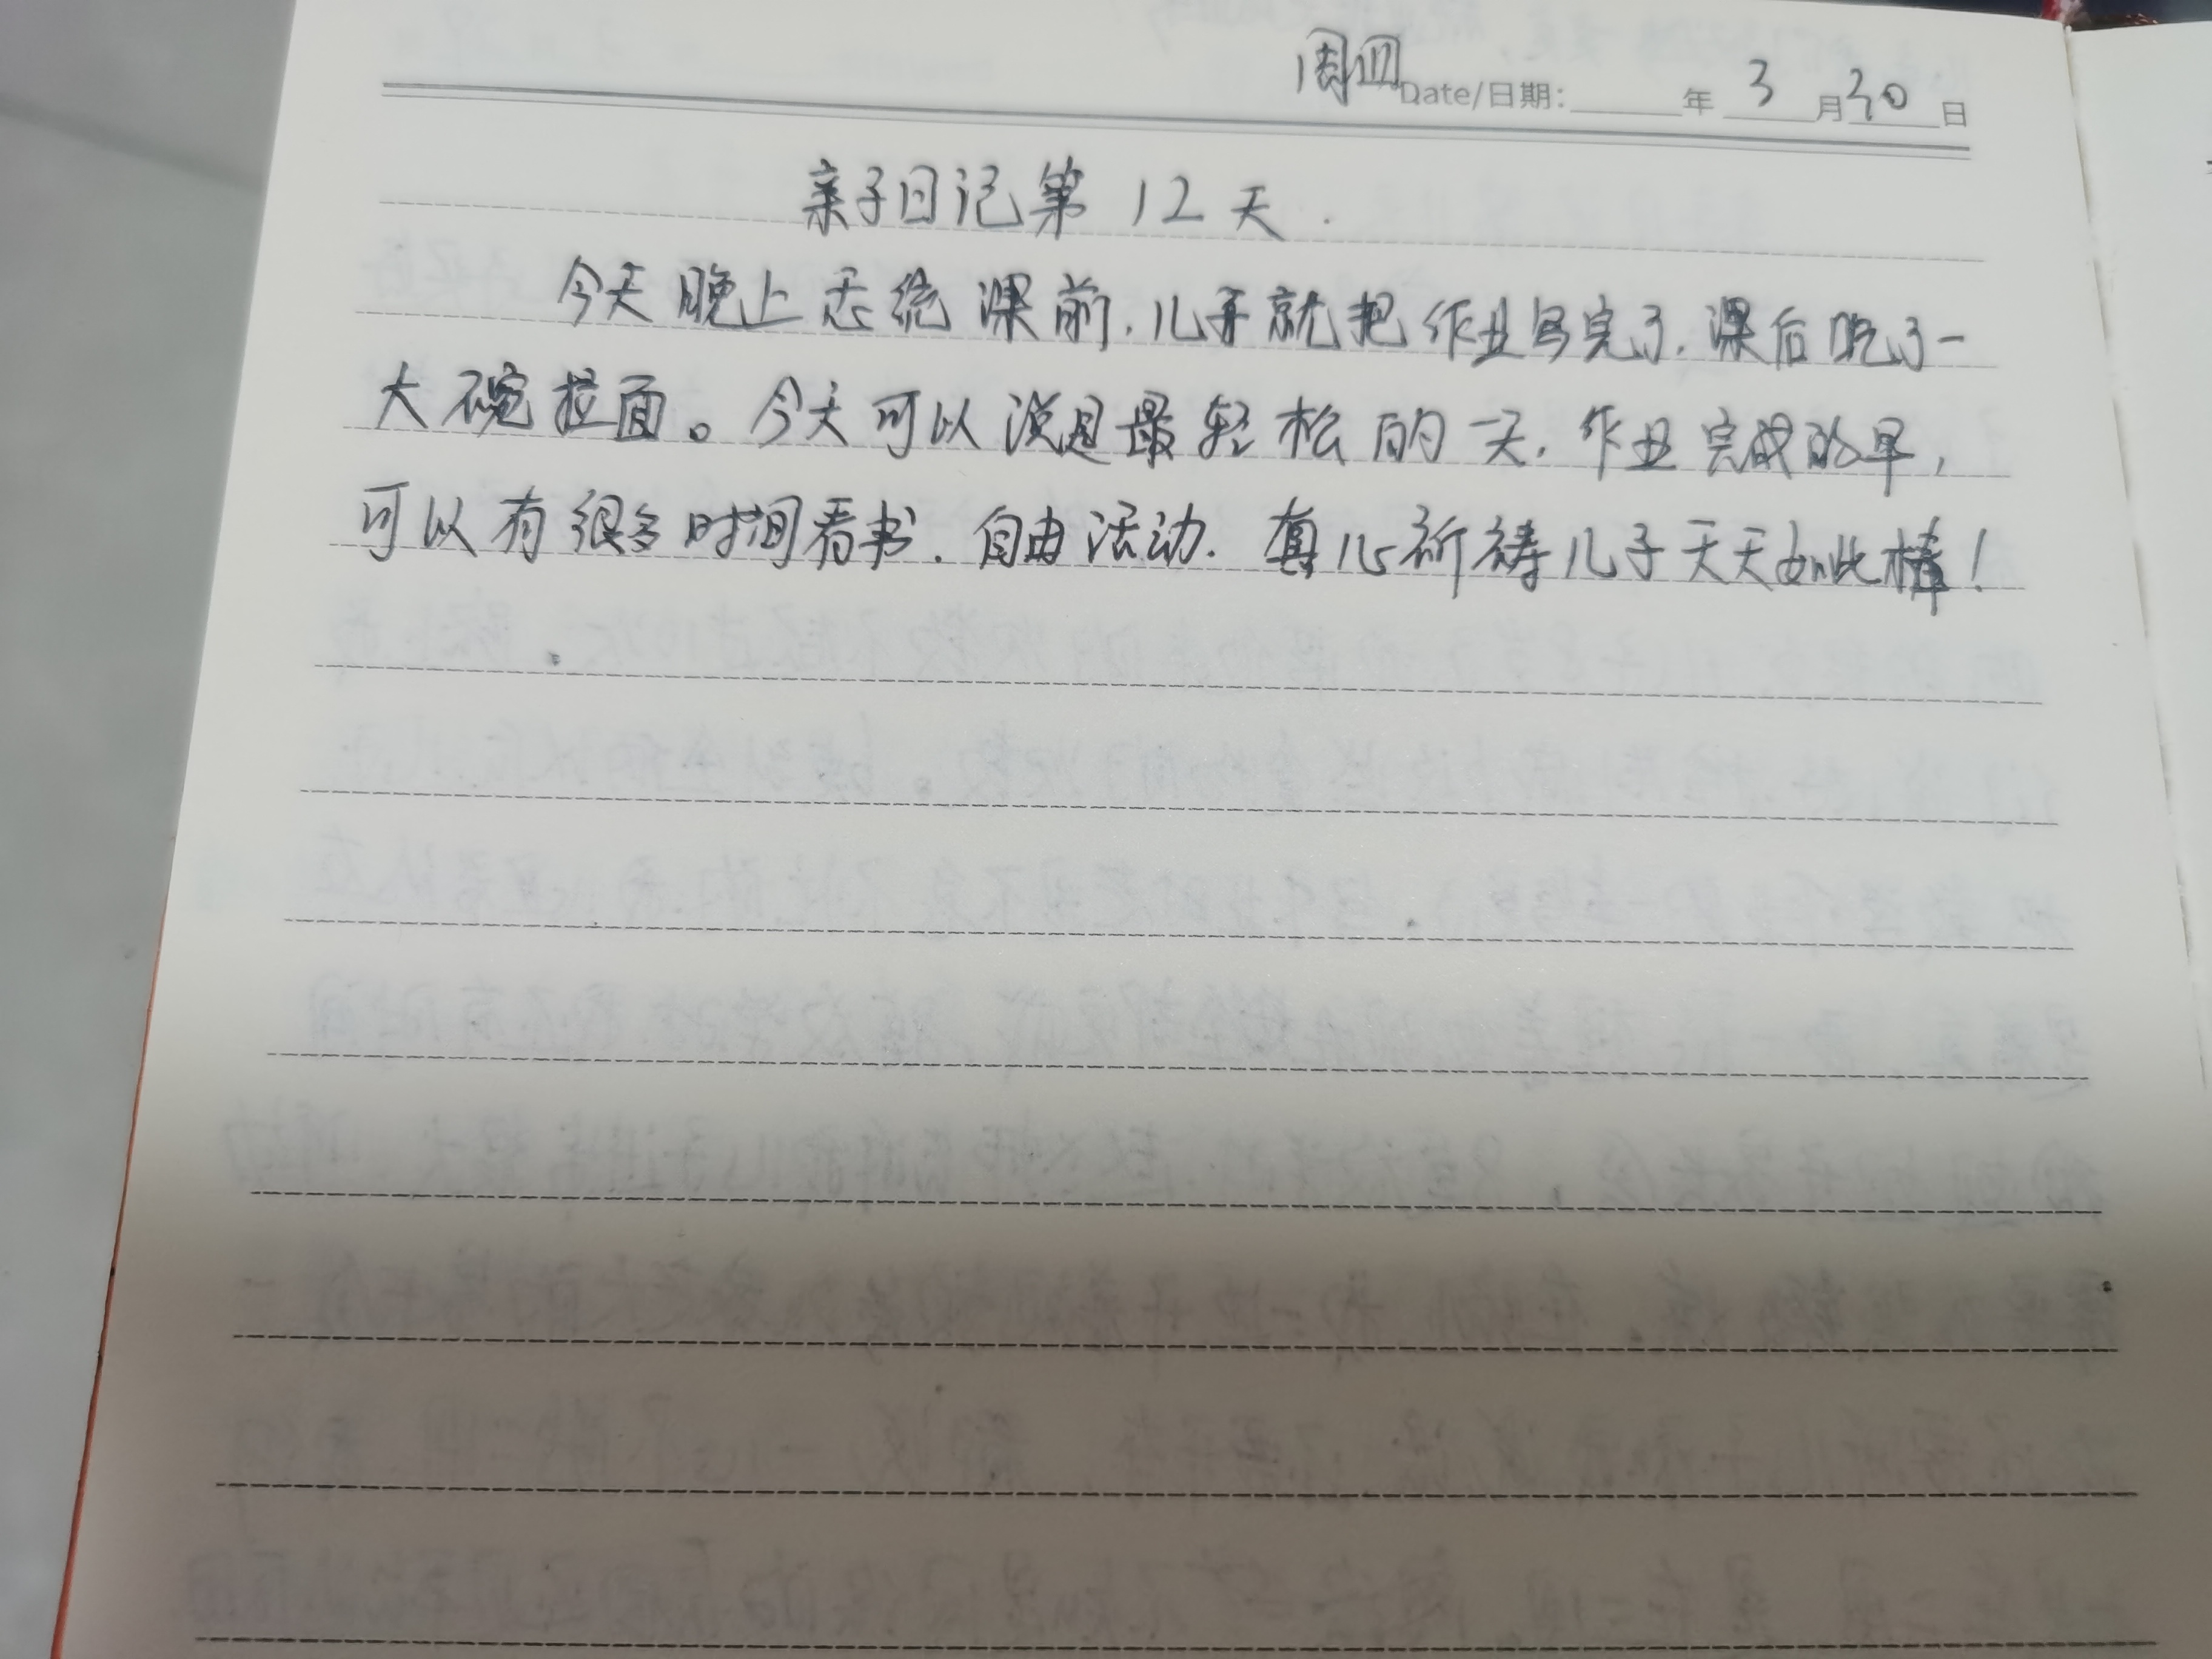 周四 Date/日期: 年 3 月 30 日
亲子日记第 12 天.
今天晚上 统课前,儿子就把作业写完了,课后吃了一
大碗拉面。今天可以说是最轻松的一天,作业完成的早,
可以有很多时间看书,自由活动.真心祈祷儿子天天如此棒!